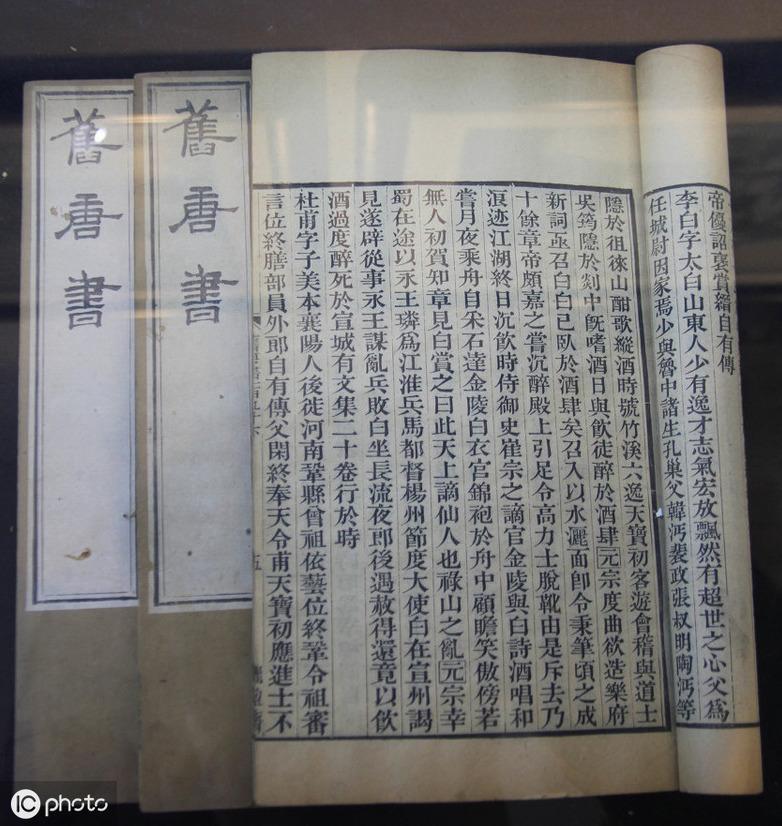 帝優詔褒賞縉自有傳
李白字太白山東人少有逸才志氣宏放飄然有超世之心父爲
任城尉因家焉少與魯中諸生孔巢父韓沔裴政張叔明陶沔等
隱於徂徠山酣歌縱酒時號竹溪六逸天寶初客遊會稽與道士
吳筠隱於剡中旣嗜酒日與飮徒醉於酒肆元宗度曲欲造樂府
新詞亟召白白已臥於酒肆矣召入以水灑面卽令秉筆頃之成
十餘章帝頗嘉之嘗沉醉殿上引足令高力士脫靴由是斥去乃
浪迹江湖終日沉飮時侍御史崔宗之謫官金陵與白詩酒唱和
嘗月夜乘舟自釆石達金陵白衣官錦袍於舟中顧瞻笑傲傍若
無人初賀知章見白賞之曰此天上謫仙人也祿山之亂元宗幸
蜀在途以永王璘爲江淮兵馬都督楊州節度大使白在宣州謁
見遂辟從事永王謀亂兵敗白坐長流夜郎後遇赦得還竟以飮
酒過度醉死於宣城有文集二十卷行於時
杜甫字子美本襄陽人後徙河南鞏縣曾祖依藝位終鞏令祖審
言位終膳部員外郎自有傳父閑終奉天令甫天寶初應進士不
五
舊唐書
舊唐書
IC photo